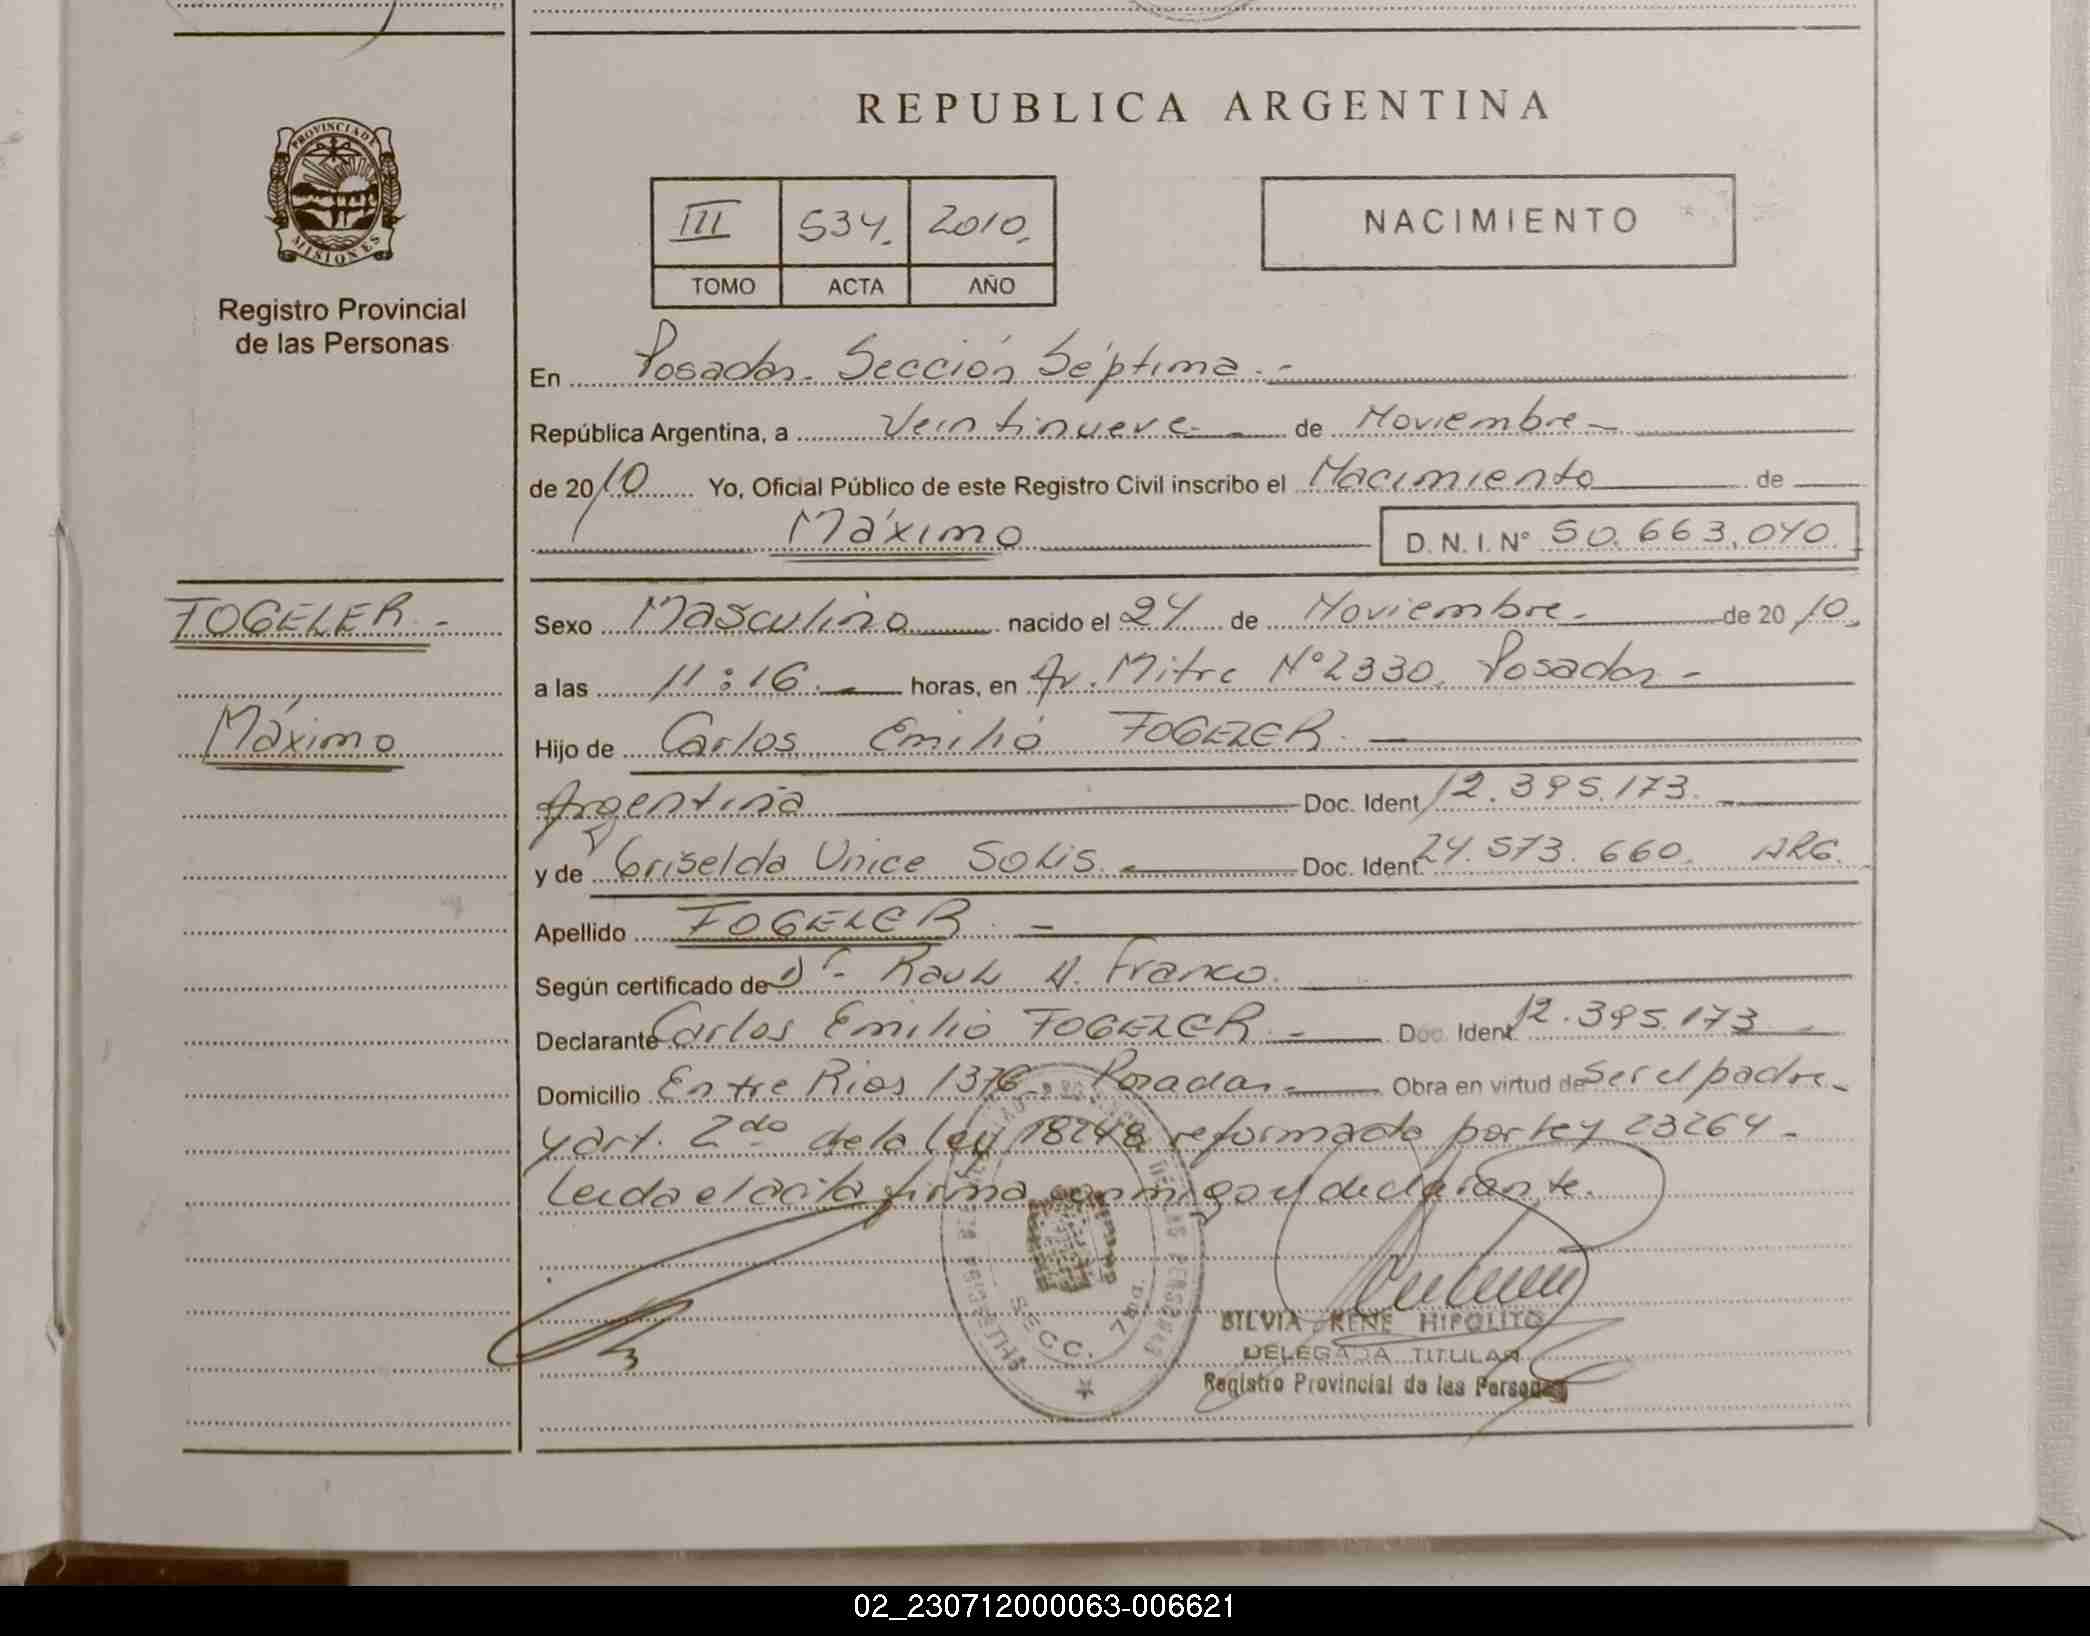 REPUBLICA ARGENTINA
PROVINCIA DE
MISIONES
Registro Provincial
de las Personas
III 534. 2010.
TOMO ACTA AÑO
NACIMIENTO
En Posadas. Sección Séptima.-
República Argentina, a Veintinueve de Noviembre
de 2010 Yo, Oficial Público de este Registro Civil inscribo el Nacimiento de
Máximo D. N. I. Nº 50.663.040.
FOGELER.-
Máximo
Sexo Masculino nacido el 24 de Noviembre de 2010.
a las 11:16. horas, en Av. Mitre Nº 2330. Posadas-
Hijo de Carlos Emilio FOGELER.
Argentina Doc. Ident 12.395.173.
y de Griselda Unice SOLIS. Doc. Ident. 24.573.660. ARG.
Apellido FOGELER.-
Según certificado de Dr. Raul A. Franco.
Declarante Carlos Emilio FOGELER.- Doc. Ident. 12.395.173
Domicilio Entre Rios 1376- Posadas.- Obra en virtud de ser el padre-
y art. 2do de la ley 18248 reformado por ley 23264-
Leida el acta firma conmigo el declarante.
SECC. 7ma.
SILVIA RENE HIPOLITO
DELEGADA TITULAR
Registro Provincial de las Personas
02_230712000063-006621